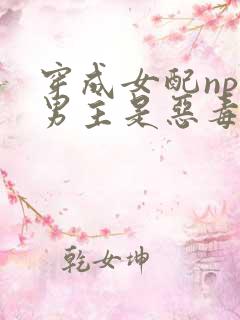 穿成女配np
男主是恶毒
乾女坤